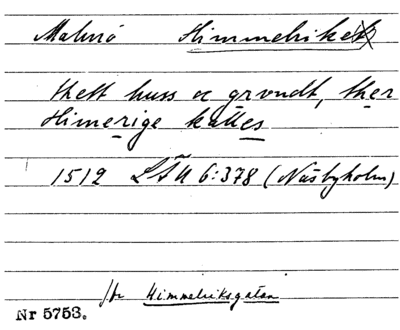 Malmö Himmelriket
thett huss oc grvndt, ther
Himerige kalles
1512 LÄU 6:378 (Näsbyholm)
/br Himmelriksgatan
Nr 5753.